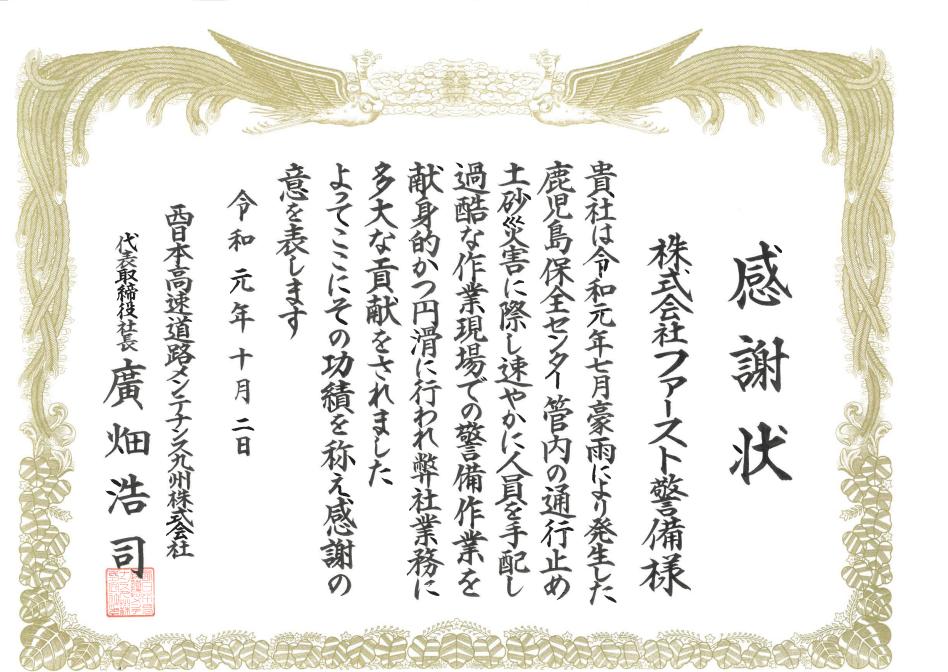 感謝状
株式会社ファースト警備様
貴社は令和元年七月豪雨により発生した
鹿児島保全センター管内の通行止め
土砂災害に際し速やかに人員を手配し
過酷な作業現場での警備作業を
献身的かつ円滑に行われ弊社業務に
多大な貢献をされました
よってここにその功績を称え感謝の
意を表します
令和元年十月二日
西日本高速道路メンテナンス九州株式会社
代表取締役社長 廣畑浩司